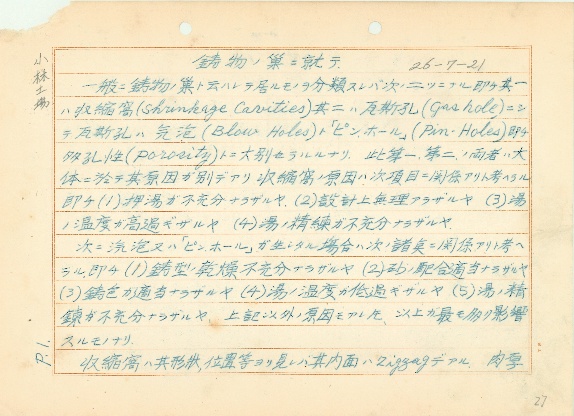 鋳物ノ巣ニ就テ 26-7-21
小林工場
一般ニ鋳物ノ巣ト云ハレテ居ルモノヲ分類スレバ次ノ二ツニナル即チ其一
ハ収縮窩(Shrinkage Cavities)其二ハ瓦斯孔(Gas hole)ニシ
テ瓦斯孔ハ気泡(Blow Holes)ト「ピンホール」(Pin-Holes)即チ
多孔性(Porosity)トニ大別セラルルナリ. 此第一、第二、ノ両者ハ大
体ニ於テ其原因ガ別デアリ 収縮窩ノ原因ハ次項目ニ関係アリト考ヘラル
即チ(1)押湯ガ不充分ナラザルヤ. (2)設計上無理アラザルヤ (3)湯
ノ温度ガ高過ギザルヤ (4)湯ノ精練ガ不充分ナラザルヤ.
次ニ気泡又ハ「ピンホール」ガ生ジタル場合ハ次ノ諸点ニ関係アリト考ヘ
ラル.即チ(1)鋳型ノ乾燥不充分ナラザルヤ (2)砂ノ配合適当ナラザルヤ
(3)鋳色ガ適当ナラザルヤ (4)湯ノ温度ガ低過ギザルヤ (5)湯ノ精
錬ガ不充分ナラザルヤ. 上記以外ノ原因モアレ共、以上ガ最モ多ク影響
スルモノナリ.
収縮窩ハ其形状,位置等ヨリ見レバ其内面ハZigzagデアル. 肉厚
P.1.
27